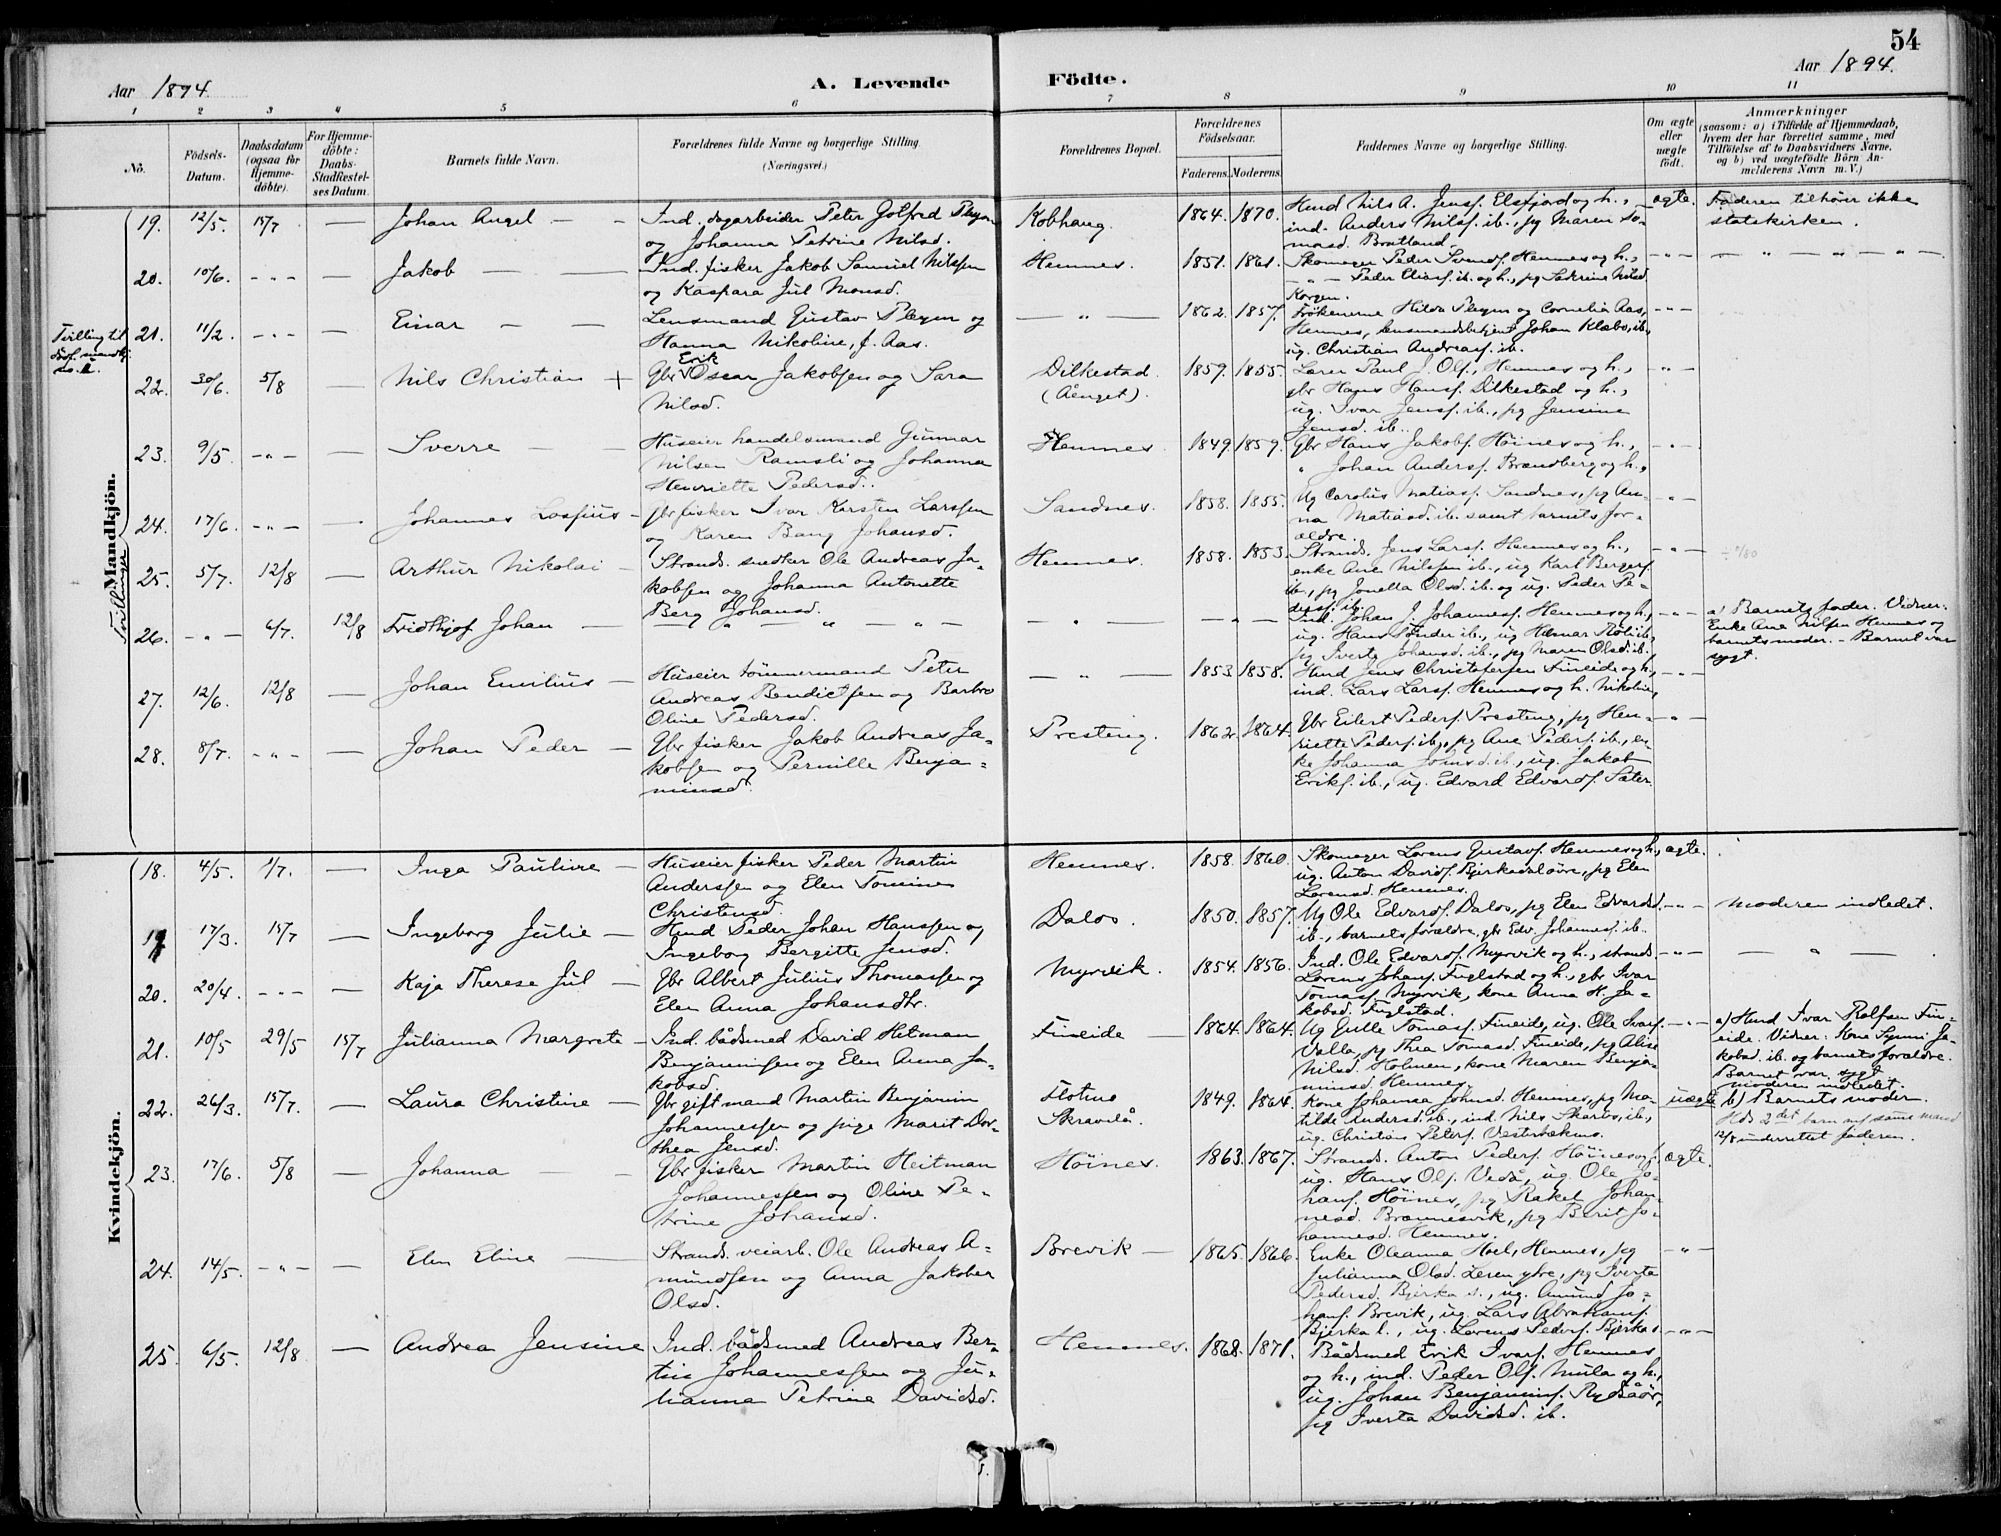 54
Aar 1894.
A. Levende Födte.
Aar 1894.
1 2 3 4 5 6 7 8 9 10 11
No.
Födsels-Datum.
Daabsdatum (ogsaa for Hjemme-döbte).
For Hjemme-döbte: Daabs-Stadfæstel-ses Datum.
Barnets fulde Navn.
Forældrenes fulde Navne og borgerlige Stilling. (Næringsvei.)
Forældrenes Bopæl.
Forældrenes Födselsaar.
Faderens. Moderens.
Faddernes Navne og borgerlige Stilling.
Om ægte eller uægte födt.
Anmærkninger
(saasom: a) i Tilfælde af Hjemmedaab, hvem der har forrettet samme, med Tilföielse af to Daabsvidners Navne, og b) ved uægtefödte Börn An-melderens Navn m. V.)
Mandkjön.
19. 12/5. 15/7 — Johan Angel — —
Ind. dagarbeider Peter Gotfred Pleym
og Johanna Petrine Nilsd.
Kobhaug. 1864. 1870.
Hmd Nils A. Jensf. Elsfjord og h.,
ind. Anders Nilsf. ib., pg Maren To-
masd. Bratland.
ægte.
Faderen tilhører ikke
statskirken.
20. 10/6. - " - — Jakob — —
Ind. fisker Jakob Samuel Nilssen
og Kaspara Jul Monsd.
Hemnes. 1851. 1861.
Skomager Peder Svendsf. Hemnes og h.,
— " — Peder Eliasf. ib. og h., pg Sakrine Nilsd
Korgen.
- " -
— " — " — " —
21. 11/2. - " - — Einar — —
Lensmand Gustav Pleym og
Hanna Nikoline, f. Aas.
— " — 1862. 1857.
Frøknerne Hilda Pleym og Cornelia Aas,
Hemnes, lensmandsbetjent Johan Klæbo, ib.,
ug. Christian Andreasf. ib.
- " -
Tvilling til
død.
22. 30/6. 5/8 — Nils Christian +
Gbr Erik Oscar Jakobsen og Sara
Nilsd.
Dilkestad.
(Aenget).
1859. 1855.
Lærer Paul J. Olf., Hemnes og h.,
gbr Hans Hansf. Dilkestad og h.,
ug. Ivar Jensf. ib., pg Jensine
Jensd. ib.
- " -
23. 9/5. - " - — Sverre —
Huseier handelsmand Gunnar
Nilsen Ramsli og Johanna
Henriette Pedersd.
Hemnes. 1849. 1859.
Gbr Hans Jakobf. Høines og h.,
" Johan Andersf. Brændberg og h.,
- " -
24. 17/6. - " - — Johannes
Gbr fisker Ivar Kirsten Larssen
og Karen Bang Johansd.
Sandnes. 1858. 1855.
Ug Carolus Matiasf. Sandnes, pg An-
na Matiasd. ib. samt barnets for-
ældre.
- " -
Tvillinger
25. 5/7. 12/8 — Arthur Nikolai —
Strands. snedker Ole Andreas Ja-
kobsen og Johanna Antonette
Berg Johansd.
Hemnes. 1858. 1853.
Strands. Jens Larsf. Hemnes og h.,
enke Ane Nilssen ib., ug Karl Bergersf
ib., pg Jonella Olsd. ib. og ug. Peder Pe-
dersf. ib.
- " -
26. - " - 6/7. 12/8 Fridthjof Johan —
— " — " — " —
— " — — " —
Ind. Johan J. Johannesf. Hemnes og h.,
ug. Hans Tønder ib., ug Hilmar Røli ib.,
pg Iverta Johansd. ib., pg Maren Olsd. ib.
- " -
a) Barnets fader. Vidner:
Enke Ane Nilsen Hemnes og
barnets moder. – Barnet var
sygt.
27. 12/6. 12/8 — Johan Emilius —
Huseier tømmermand Peter
Andreas Bendictsen og Barbro
Oline Pedersd.
— " — 1853. 1858.
Hmd Jens Christofersen Fineide og h.,
ind. Lars Larsf. Hemnes og h. Nikoline
- " -
28. 8/7. - " - — Johan Peder —
Gbr fisker Jakob Andreas Ja-
kobsen og Pernille Benja-
minsd.
Presteng. 1862. 1864.
Gbr Eilert Pedersf. Presteng, pg Hen-
riette Pedersf. ib., pg Ane Pedersf. ib., en-
ke Johanna Jonsd. ib., ug. Jakob
Eriksf. ib., ug. Edvard Edvardsf. Sæter.
- " -
Kvindekjön.
18. 4/5. 1/7. — Inga Pauline —
Huseier fisker Peder Martin
Anderssen og Elen Tomine
Christensd.
Hemnes. 1858. 1860.
Skomager Lorens Gustavf. Hemnes og h.,
ug. Anton Davidf. Bjerkadaløvre, pg Elen
Lorensd. Hemnes.
ægte.
19. 17/3. 15/7 — Ingeborg Julie —
Hmd Peder Johan Hanssen og
Ingeborg Bergitte Jensd.
Dalos. 1850. 1857.
Ug Ole Edvardf. Dalos, pg Elen Edvardsd.
ib., barnets forældre, gbr Edv. Johannesf. ib.
- " -
Moderen indledet.
20. 20/4. - " - — Kaja Therese Jul —
Gbr Albert Julius Thomassen og
Elen Anna Johansdtr.
Myrvik. 1854. 1856.
Ind. Ole Edvardf. Myrvik og h., strands
Lorens Johansf. Fuglstad og h., gbr Ivar
Tomasf. Myrvik, kone Anna H. Ja-
kobsd. Fuglstad.
- " -
— " —
21. 10/5 29/5 15/7 Julianna Margrete —
Ind. bådsmed David Hetman
Benjaminsen og Elen Anna Ja-
kobsd.
Fineide — 1864. 1864.
Ug Gulle Tomasf. Fineide, ug. Ole Ivarsf.
Valla, pg Thea Tomasd. Fineide, pg Alise
Nilsd. Holmen, kone Maren Benja-
minsd. Hemnes.
- " -
a) Hmd Ivar Rolfsen Fin-
eide. Vidner: Kone Synni Ja-
kobsd. ib. og barnets forældre.
Barnet var sygt
moderen indledet.
22. 26/3. 15/7. — Laura Christine —
Gbr gift mand Martin Benjamin
Johannessen og pige Marit Dor-
thea Jensd.
Flotmo
Skravlå.
1849. 1864.
Kone Johanna Johnsd. Hemnes, pg Ma-
tilde Andersd. ib., ind. Nils Skarbo, ib.,
ug. Christian Petersf. Vesterbekmo.
uægte
b) Barnets moder.
Hds 2det barn m/ samme mand
12/8 underrettet faderen.
23. 17/6. 5/8 — Johanna —
Gbr fisker Martin Heitman
Johannessen og Oline Pe-
trine Johansd.
Høines. 1863. 1867.
Strands. Anton Pedersf. Høines og h.
ug. Hans Olf. Vedå, ug. Ole Jo-
hansf. Høines, pg Rakel Johan-
nesd. Brennesvik, pg Berit Jo-
hannesd. Hemnes.
ægte.
24. 14/5. - " - — Elen Eline —
Strands. veiarb. Ole Andreas A-
mundsen og Anna Jakobea
Olsd.
Brevik — 1865. 1866.
Enke Oleanna Hoel, Hemnes, pg
Julianna Olsd. Leren ytre, pg Iverta
Pedersd. Bjerka s., ug. Amund Jo-
hansf. Brevik, ug Lars Abrahamsf.
Bjerka l., ug. Lorens Pedersf. Bjerka s.
- " -
25. 6/5. 12/8 — Andrea Jensine
Ind. bådsmed Andreas Ber-
tin Johannessen og Ju-
lianna Petrine Davidsd.
Hemnes. 1868. 1871.
Bådsmed Erik Ivarsf. Hemnes
og h., ind. Peder Olf. Mula og h.,
ug. Johan Benjaminf. Rydsåør,
pg Iverta Davidsd. ib.
- " -